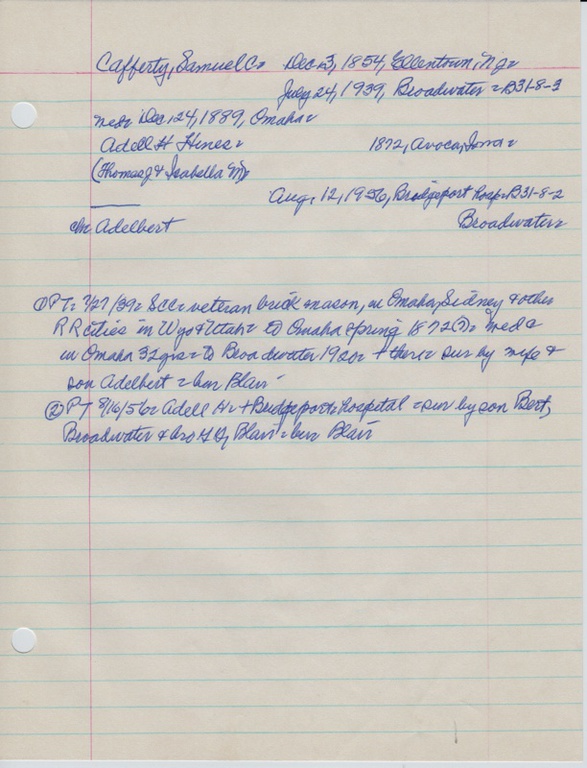 Cafferty, Samuel C= Dec 3, 1854, Ellentown, NJ=
July 24, 1939, Broadwater = B31-8-3
med= Dec 24, 1889, Omaha=
Adell H Hines= 1872, Avoca, Iowa=
(Thomas J & Isabella M)=
Aug. 12, 1956, Bridgeport Hosp= B31-8-2
ch Adelbert Broadwater=
① PT= 7/27/39= SCC= veteran brick mason, in Omaha, Sidney & other
RR cities in Wyo & Utah= to Omaha spring 1872(?)= med &
in Omaha 32 yrs= to Broadwater 1920= + there= sur by wife &
son Adelbert = bur Blair
② PT 8/16/56= Adell H= + Bridgeport= hospital = sur by son Bert,
Broadwater & bro Blair = bur Blair